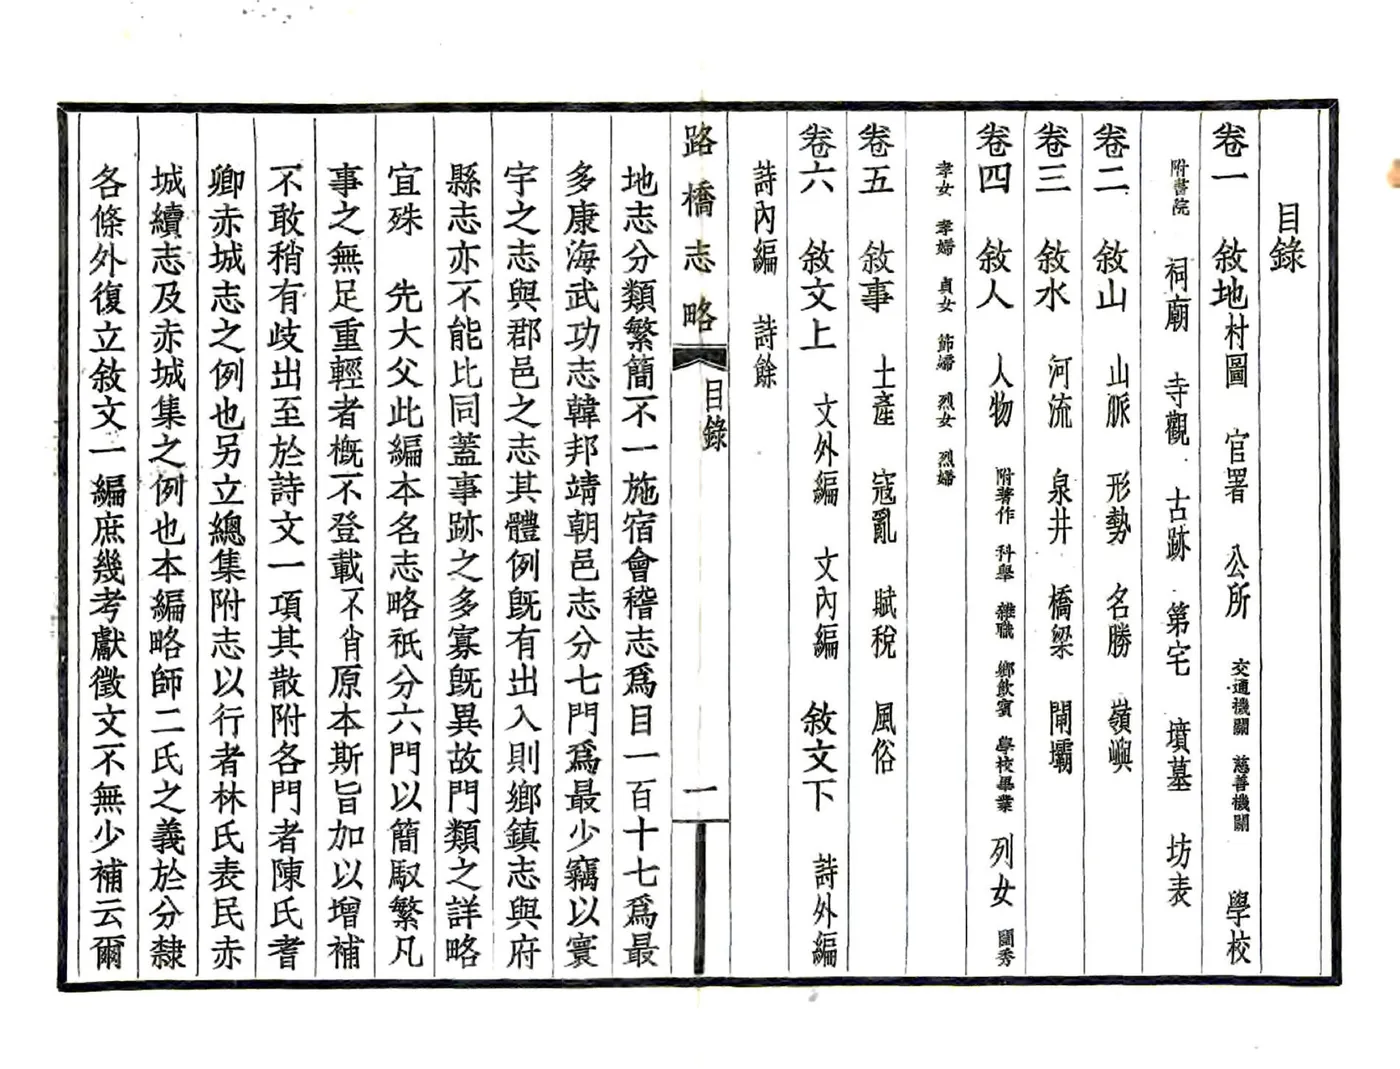 目錄
卷一　敘地村圖　官署　公所　交通機關　慈善機關　學校
附書院　祠廟　寺觀　古跡　第宅　墳墓　坊表
卷二　敘山　山脈　形勢　名勝　嶺嶼
卷三　敘水　河流　泉井　橋梁　閘壩
卷四　敘人　人物　附著作　科舉　雜職　鄉飲賓　學校畢業　列女　閨秀
孝女　孝婦　貞女　節婦　烈女　烈婦
卷五　敘事　土產　寇亂　賦稅　風俗
卷六　敘文上　文外編　文內編　敘文下　詩外編
詩內編　詩餘
路橋志略　目錄　一
地志分類繁簡不一施宿會稽志爲目一百十七爲最
多康海武功志韓邦靖朝邑志分七門爲最少竊以寰
宇之志與郡邑之志其體例旣有出入則鄉鎮志與府
縣志亦不能比同蓋事跡之多寡旣異故門類之詳略
宜殊　先大父此編本名志略祇分六門以簡馭繁凡
事之無足重輕者槪不登載不肖原本斯旨加以增補
不敢稍有歧出至於詩文一項其散附各門者陳氏耆
卿赤城志之例也另立總集附志以行者林氏表民赤
城續志及赤城集之例也本編略師二氏之義於分隸
各條外復立敘文一編庶幾考獻徵文不無少補云爾